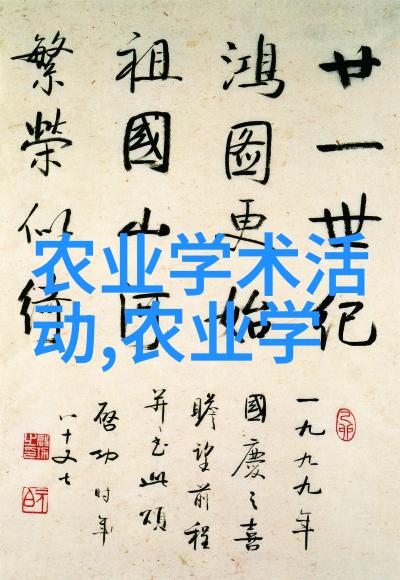 廿一世纪
鸿图更始
祖國山河
繁榮似綺
一九九九年
國慶之喜
瞻望前程
并书此頌
啓功时年
八十又七
农业学术活
动,农业学